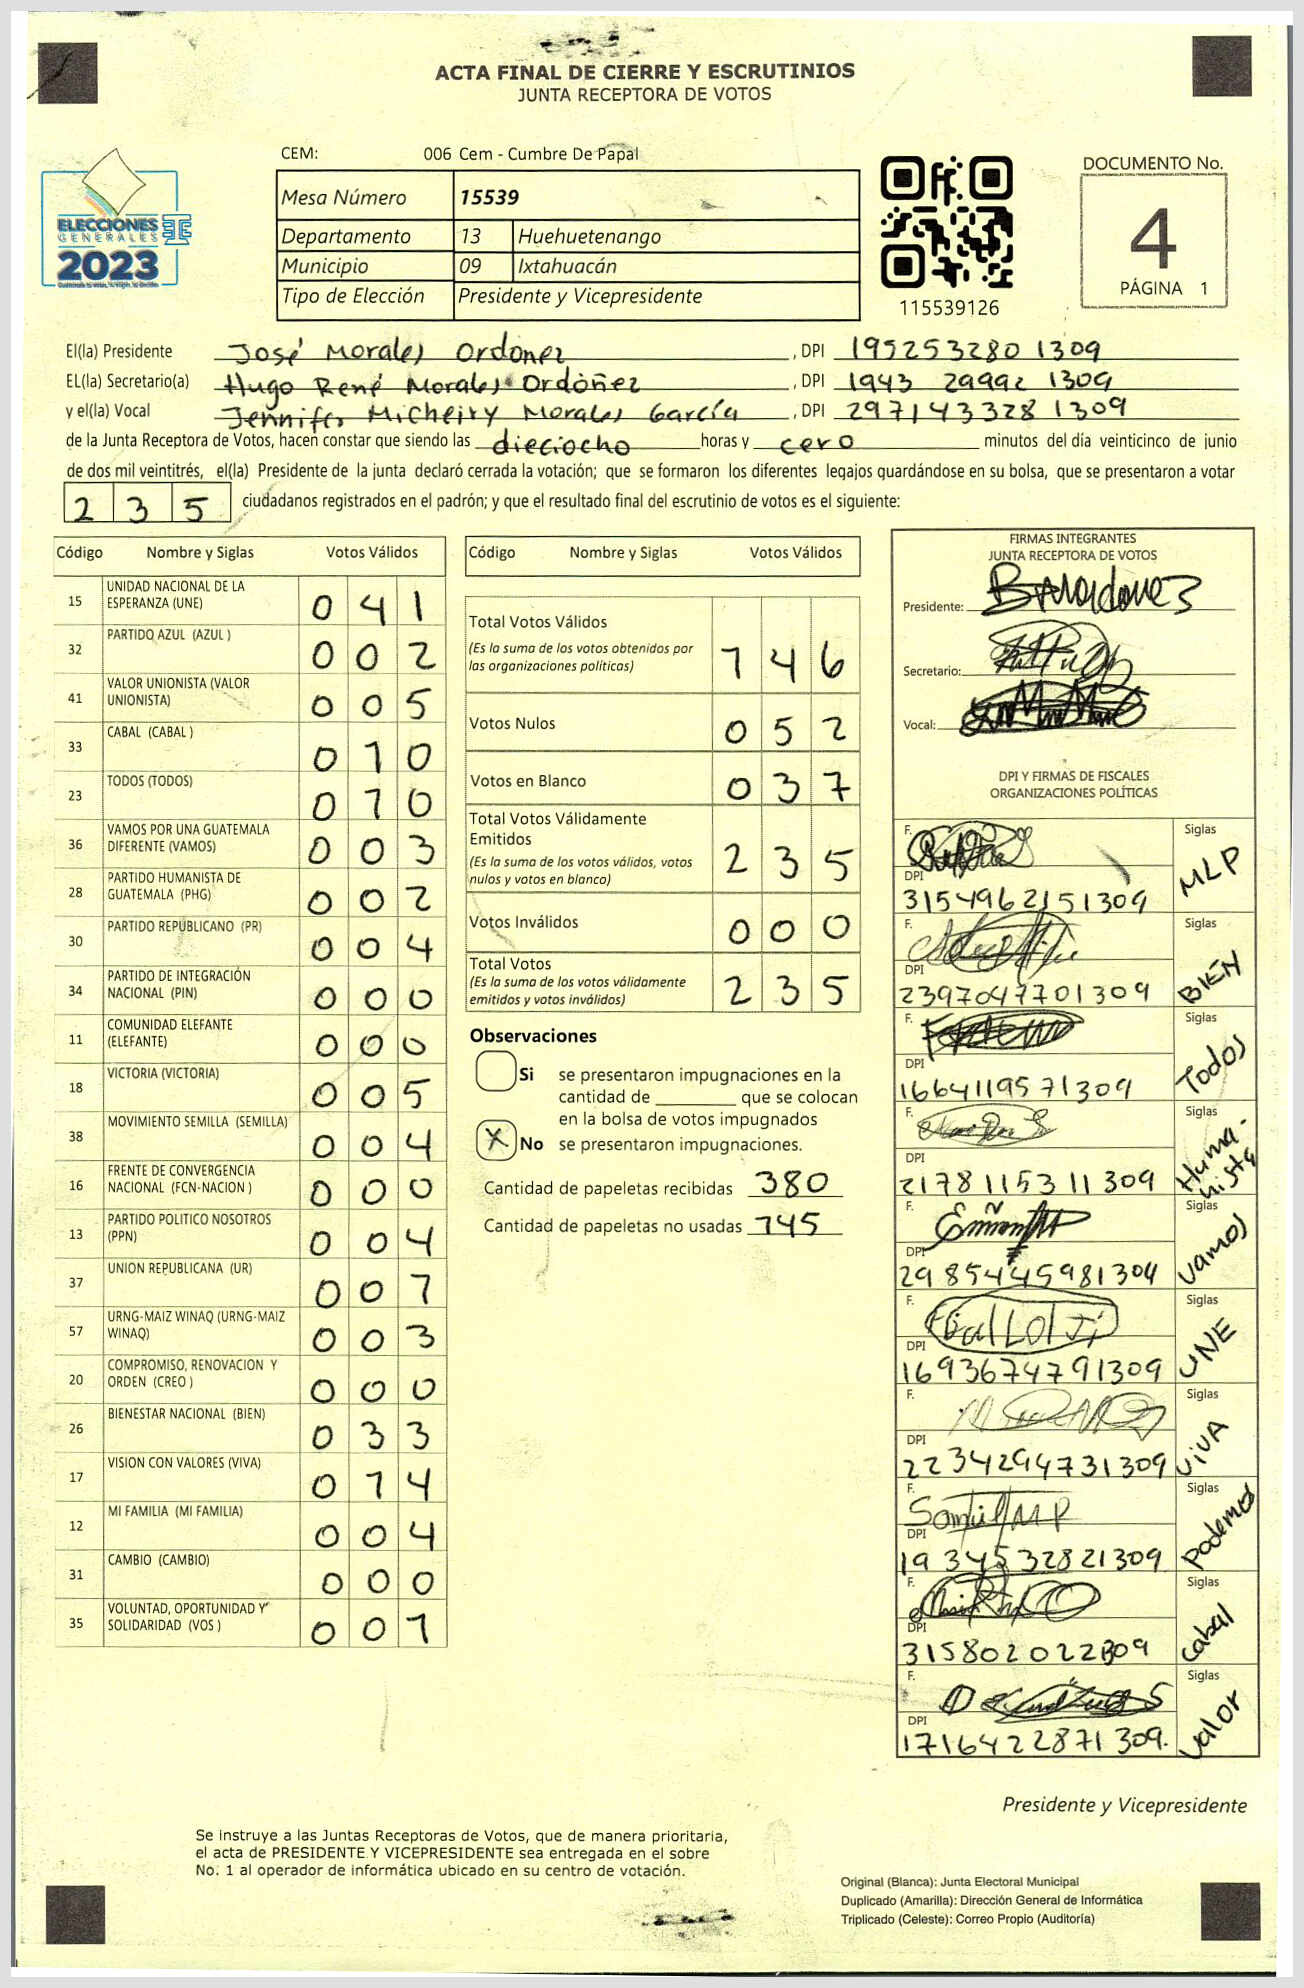 ACTA FINAL DE CIERRE Y ESCRUTINIOS
JUNTA RECEPTORA DE VOTOS
CEM: 006 Cem - Cumbre De Papal
ELECCIONES
GENERALES
2023
Mesa Número 15539
Departamento 13 Huehuetenango
Municipio 09 Ixtahuacán
Tipo de Elección Presidente y Vicepresidente
115539126
DOCUMENTO No.
4
PÁGINA 1
El(la) Presidente José Morales Ordoñez , DPI 195253280 1309
EL(la) Secretario(a) Hugo René Morales Ordóñez , DPI 1943 29992 1309
y el(la) Vocal Jennifer Morales García , DPI 297143328 1309
de la Junta Receptora de Votos, hacen constar que siendo las dieciocho horas y cero minutos del día veinticinco de junio
de dos mil veintitrés, el(la) Presidente de la junta declaró cerrada la votación; que se formaron los diferentes legajos quardándose en su bolsa, que se presentaron a votar
2 3 5 ciudadanos registrados en el padrón; y que el resultado final del escrutinio de votos es el siguiente:
Código Nombre y Siglas Votos Válidos
15 UNIDAD NACIONAL DE LA ESPERANZA (UNE) 0 4 1
32 PARTIDO AZUL (AZUL ) 0 0 2
41 VALOR UNIONISTA (VALOR UNIONISTA) 0 0 5
33 CABAL (CABAL ) 0 1 0
23 TODOS (TODOS) 0 1 0
36 VAMOS POR UNA GUATEMALA DIFERENTE (VAMOS) 0 0 3
28 PARTIDO HUMANISTA DE GUATEMALA (PHG) 0 0 2
30 PARTIDO REPUBLICANO (PR) 0 0 4
34 PARTIDO DE INTEGRACIÓN NACIONAL (PIN) 0 0 0
11 COMUNIDAD ELEFANTE (ELEFANTE) 0 0 0
18 VICTORIA (VICTORIA) 0 0 5
38 MOVIMIENTO SEMILLA (SEMILLA) 0 0 4
16 FRENTE DE CONVERGENCIA NACIONAL (FCN-NACION ) 0 0 0
13 PARTIDO POLITICO NOSOTROS (PPN) 0 0 4
37 UNION REPUBLICANA (UR) 0 0 1
57 URNG-MAIZ WINAQ (URNG-MAIZ WINAQ) 0 0 3
20 COMPROMISO, RENOVACION Y ORDEN (CREO ) 0 0 0
26 BIENESTAR NACIONAL (BIEN) 0 3 3
17 VISION CON VALORES (VIVA) 0 1 4
12 MI FAMILIA (MI FAMILIA) 0 0 4
31 CAMBIO (CAMBIO) 0 0 0
35 VOLUNTAD, OPORTUNIDAD Y SOLIDARIDAD (VOS ) 0 0 1
Código Nombre y Siglas Votos Válidos
Total Votos Válidos 1 4 6
(Es la suma de los votos obtenidos por
las organizaciones políticas)
Votos Nulos 0 5 2
Votos en Blanco 0 3 7
Total Votos Válidamente
Emitidos 2 3 5
(Es la suma de los votos válidos, votos
nulos y votos en blanco)
Votos Inválidos 0 0 0
Total Votos 2 3 5
(Es la suma de los votos válidamente
emitidos y votos inválidos)
Observaciones
Si se presentaron impugnaciones en la
cantidad de ________ que se colocan
en la bolsa de votos impugnados
X No se presentaron impugnaciones.
Cantidad de papeletas recibidas 380
Cantidad de papeletas no usadas 145
FIRMAS INTEGRANTES
JUNTA RECEPTORA DE VOTOS
Presidente:
Secretario:
Vocal:
DPI Y FIRMAS DE FISCALES
ORGANIZACIONES POLÍTICAS
F. Siglas
DPI
3154962151309 MLP
F. Siglas
DPI
2397047701309 BIEN
F. Siglas
DPI
1664119571309 Todos
F. Siglas
DPI
2178115311309 Humanista
F. Siglas
DPI
2985445981309 Vamos
F. Siglas
DPI
1693674791309 UNE
F. Siglas
DPI
2234294731309 ViVA
F. Siglas
DPI
1934532821309 Podemos
F. Siglas
DPI
Cabal
F. Siglas
DPI
1716422871309. Valor
Presidente y Vicepresidente
Se instruye a las Juntas Receptoras de Votos, que de manera prioritaria,
el acta de PRESIDENTE Y VICEPRESIDENTE sea entregada en el sobre
No. 1 al operador de informática ubicado en su centro de votación.
Original (Blanca): Junta Electoral Municipal
Duplicado (Amarilla): Dirección General de Informática
Triplicado (Celeste): Correo Propio (Auditoría)